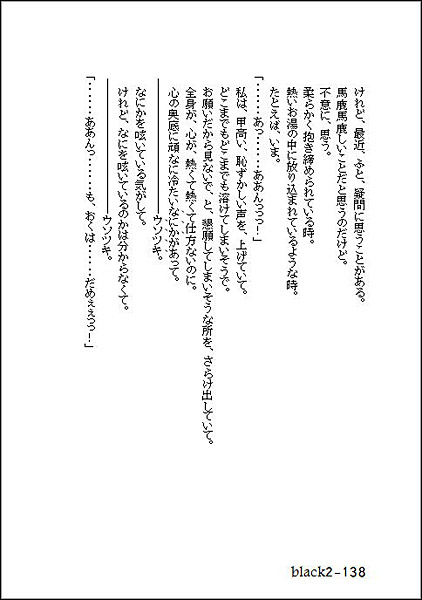 けれど、最近、ふと、疑問に思うことがある。
馬鹿馬鹿しいことだと思うのだけど。
不意に、思う。
柔らかく抱き締められている時。
熱いお湯の中に放り込まれているような時。
たとえば、いま。
「‥‥‥あっ‥‥‥ああんっっっ！」
私は、甲高い、恥ずかしい声を、上げていて。
どこまでもどこまでも溶けてしまいそうで。
お願いだから見ないで、と、懇願してしまいそうな所を、さらけ出していて。
全身が、心が、熱くて熱くて仕方ないのに。
心の奥底に頑なに冷たいなにかがあって。
――――――――ウソツキ。
なにかを呟いている気がして。
けれど、なにを呟いているのかは分からなくて。
――――――――ウソツキ。
「‥‥‥ああんっ‥‥‥も、おくは‥‥‥だめぇぇっっ！」
black2-138